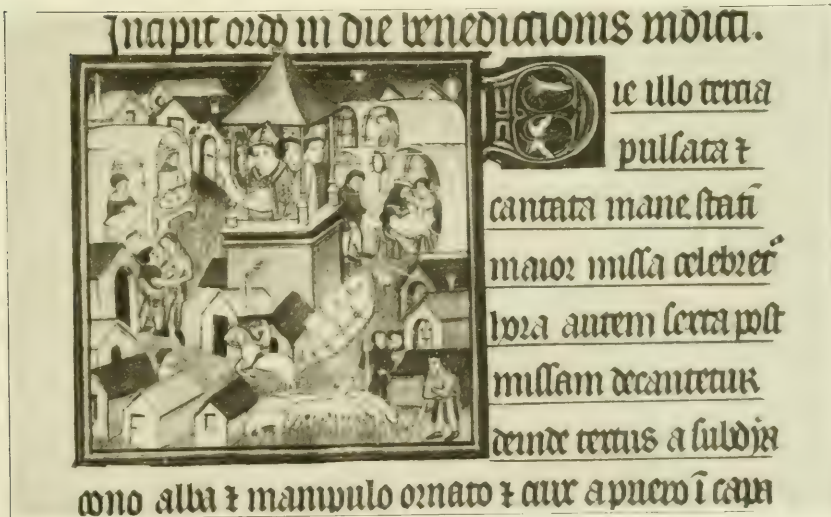 Incipit ordo in die benedictionis indicti.
Die illo tertia
pulsata ⁊
cantata mane stati᷑
maior missa celebret᷑
hora autem sexta post
missam decantetur
deinde textus a subdya
cono alba ⁊ manipulo ornato ⁊ crux a puero ī capa